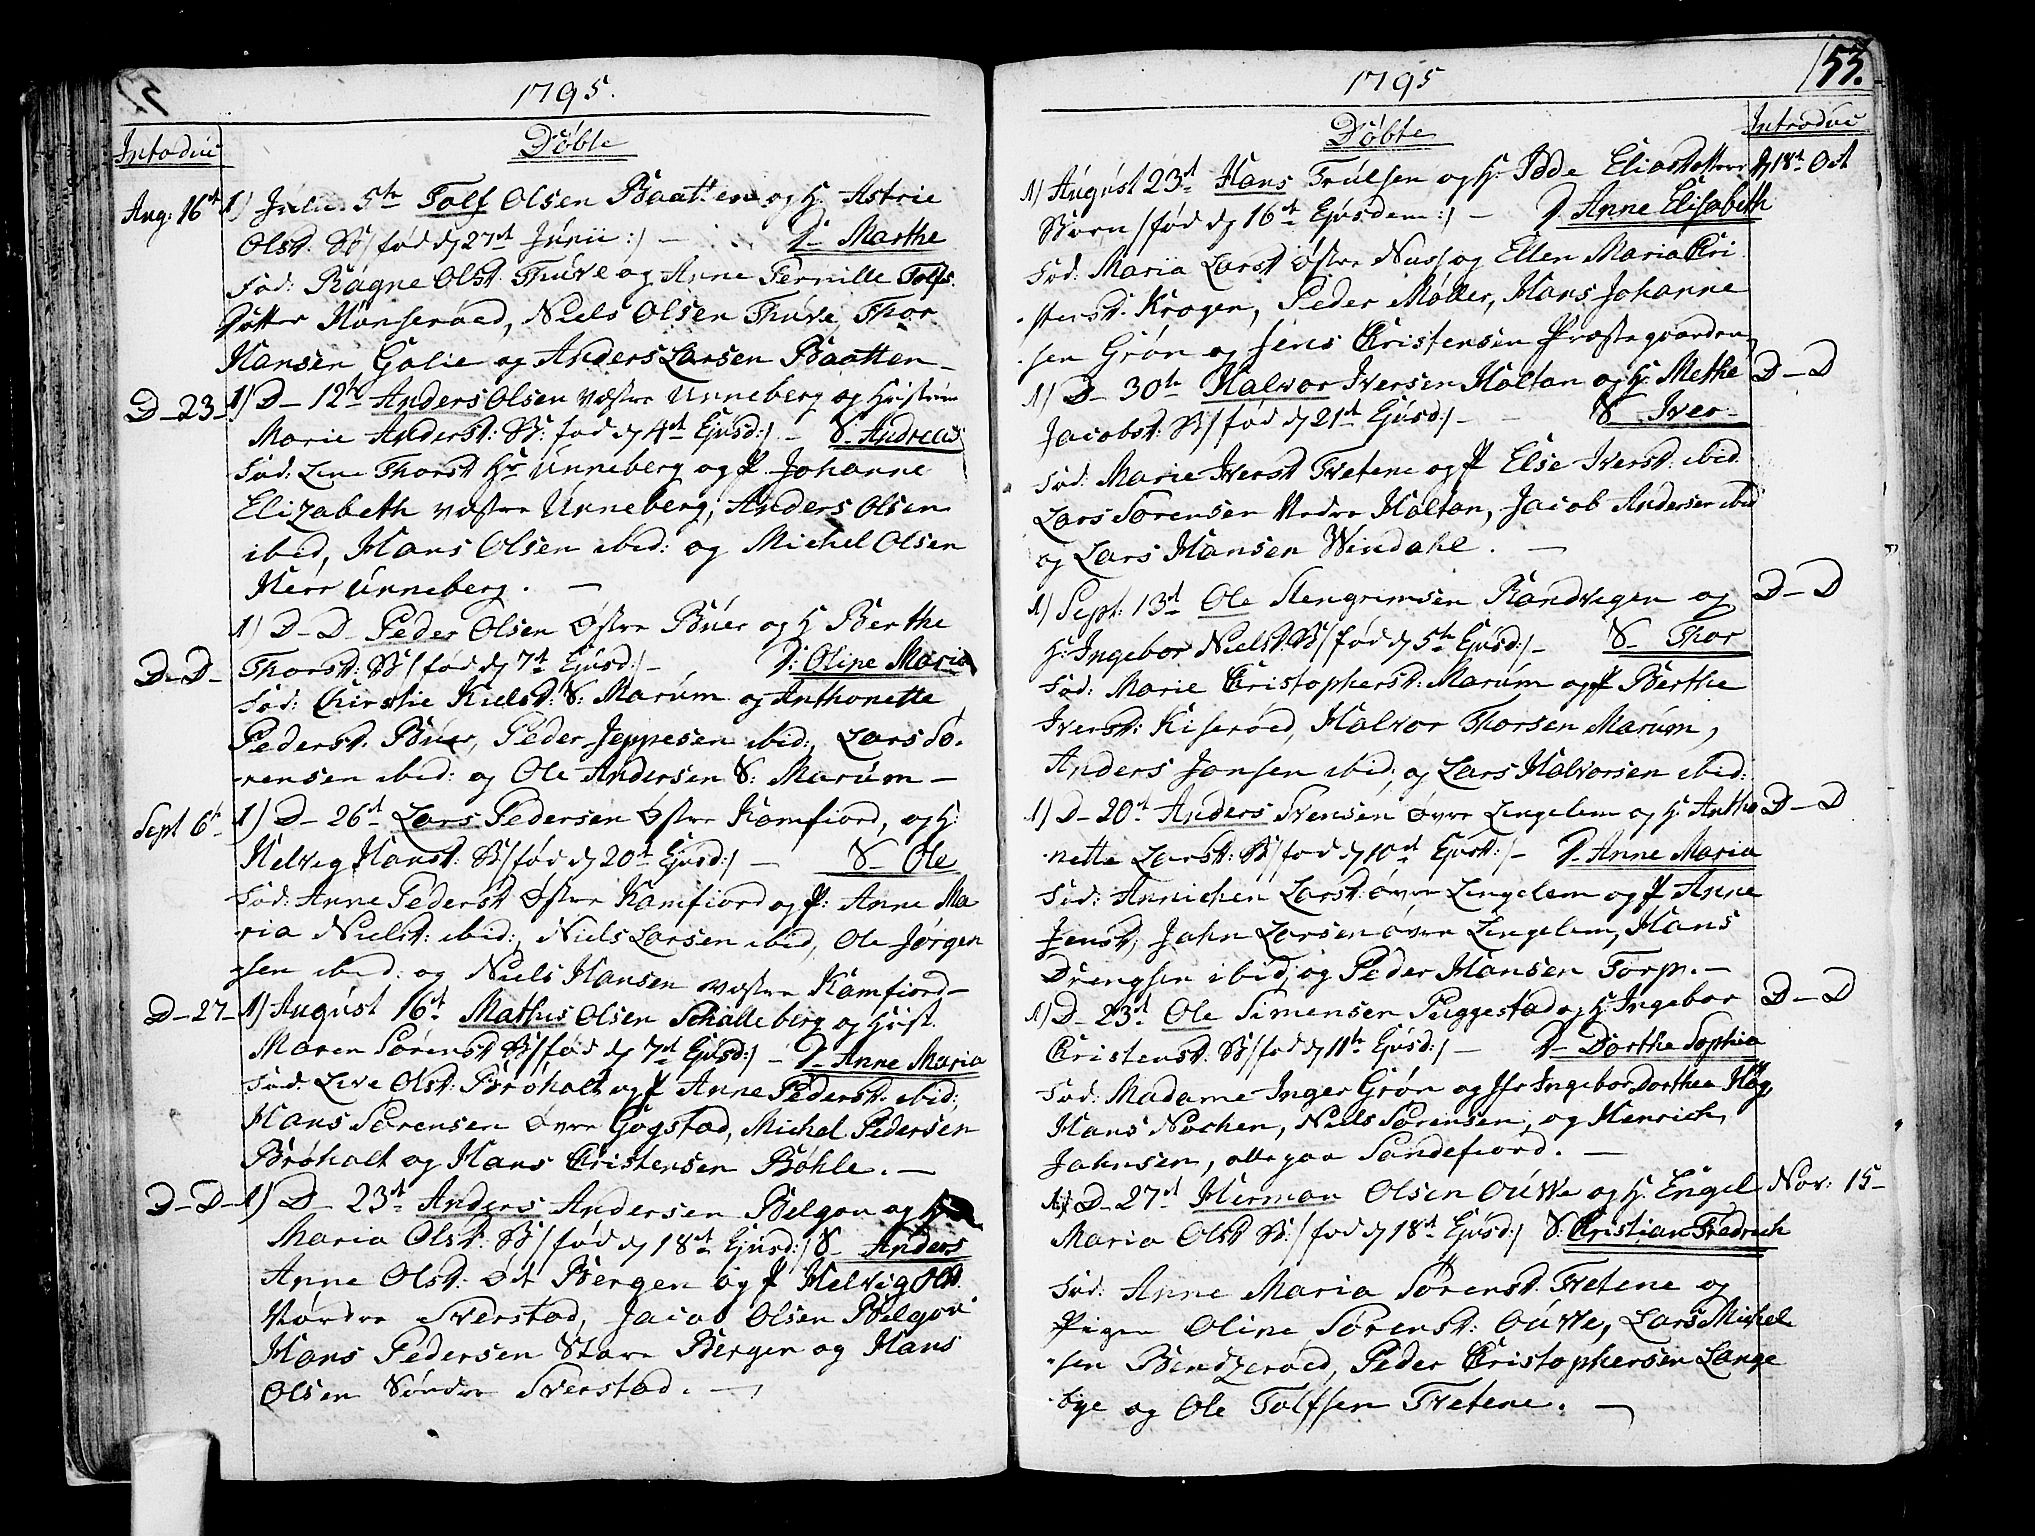 1795.
Introduc
Døbte
Aug: 16de 1) Julii 5te Tolf Olsen Baatten og H. Astrie
Olsd. B/ fød d 27de Junii :/ — D- Marthe
Fad: Ragne Olsd. Thuve og Anne Pernille Tolfs.
Datter Hunserøed, Niels Olsen Thuve, Thor
Hansen Golie og Anders Larsen Baatten —
D-23- 1) D- 12te Anders Olsen vestre Unneberg og Hustrue
Marie Andersd: B: fød d 4de Ejusd:/ - S. Andreas
Fad: Line Thorsd Hr Unneberg og P. Johanne
Elizabeth vestre Unneberg, Anders Olsen
ibid, Hans Olsen ibid: og Michel Olsen
Herr Unneberg. —
1) D- D- Peder Olsen Østre Buer og H. Berthe
D-D- Thorsd: B/ fød d 7de Ejusd:/ - D: Oline Maria
Fad: Chirstie Kielsd: S: Marum og Anthonette
Pedersd. Buer, Peder Jeppesen ibid:, Lars Sø-
-rensen ibid: og Ole Andersen S: Marum —
Sept 6te 1) D- 26de Lars Pedersen Østre Kamfiord, og H.
Helvig Hansd: B/ fød d 20de Ejusd:/ — S- Ole
Fad: Anne Pedersd Østre Kamfiord og P: Anne Ma
-ria Nielsd: ibid:, Niels Larsen ibid, Ole Jørgen
-sen ibid: og Niels Hansen vestre Kamfiord —
D-27- 1) August 16de Mathis Olsen Schalleberg og Hust.
Maren Sørensd B/ fød d 7de Ejusd:/ - D- Anne Maria
Fad. Live Olsd: Brøholt og P Anne Pedersd. ibid:,
Hans Sørensen Øvre Gogstad, Michel Pedersen
Brøholt og Hans Christensen Bøhle. —
D-D- 1) D- 23de Anders Andersen Belgou og H
Maria Olsd: B/ fød d 18de Ejusd:/ S- Anders
Anne Olsd: Bergen og P Helvig Olsd.
Nordre Sverstad, Jacob Olsen Belgou
Hans Pedersen Store Bergen og Hans
Olsen Søndre Sverstad. —
1795
53.
Døbte
Introduc
1) August 23de Hans Trulsen og H. Idde Eliasdatter d 18de Oct
Worn / fød d 16de Ejusdem :/ — D. Anne Elisabeth
Fad: Maria Larsd Østre Næss og Ellen Maria Chri
-stensd. Krogen, Peder Møller, Hans Johanne
-sen Grøn og Jens Christensen Præstegaarden,
1) D- 30te Halvor Iversen Holtan og H. Methe D-D
Jacobsd: B/ fød d 21de Ejusd:/ - S Iver-
Fad: Marie Iversd Tvetene og P Else Iversd: ibid
Lars Sørensen Nedre Holtan, Jacob Andersen ibid
og Lars Hansen Windahl. —
1) Sept: 13de Ole Stengrimsen Randvigen og D-D
H: Ingebor Nielsd: B/ fød d 5te Ejusd:/ - S- Thor
Fad: Marie Christophersd: Marum og P Berthe
Iversd: Kiserøed, Halvor Thorsen Marum,
Anders Jansen ibid; og Lars Halvorsen ibid:
1) D- 20de Anders Svensen øvre Lingelem og H. Antho D-D
-nette Larsd: B/ fød d 10de Ejusd:/ - D. Anne Maria
Fad: Annichen Larsd. øvre Lingelem og P Anne
Jensd, Jahn Larsen øvre Lingelem, Hans
Drengsen ibid; og Peder Hansen Torp. —
1) D- 23de Ole Simensen Puggestad og H. Ingebor D-D
Christensd. B/ fød d 11te Ejusd:/ — D- Dorthe Sophia
Fad: Madame Inger Grøn og Jfr Ingebor Dorthea Høg,
Hans Nochen, Niels Sørensen, og Henrich
Jahnsen, alle paa Sandefiord. —
1) D- 27de Herman Olsen Ouwe og H. Engel Nov: 15-
Maria Olsd B: / fød d 18de Ejusd:/ S: Christian Fredrich
Fad: Anne Maria Sørensd. Tvetene og
Pigen Oline Sørensd: Ouwe, Lars Michel
-sen Bendzerøed, Peder Christophersen Lange
-bye og Ole Tolfsen Tvetene. —